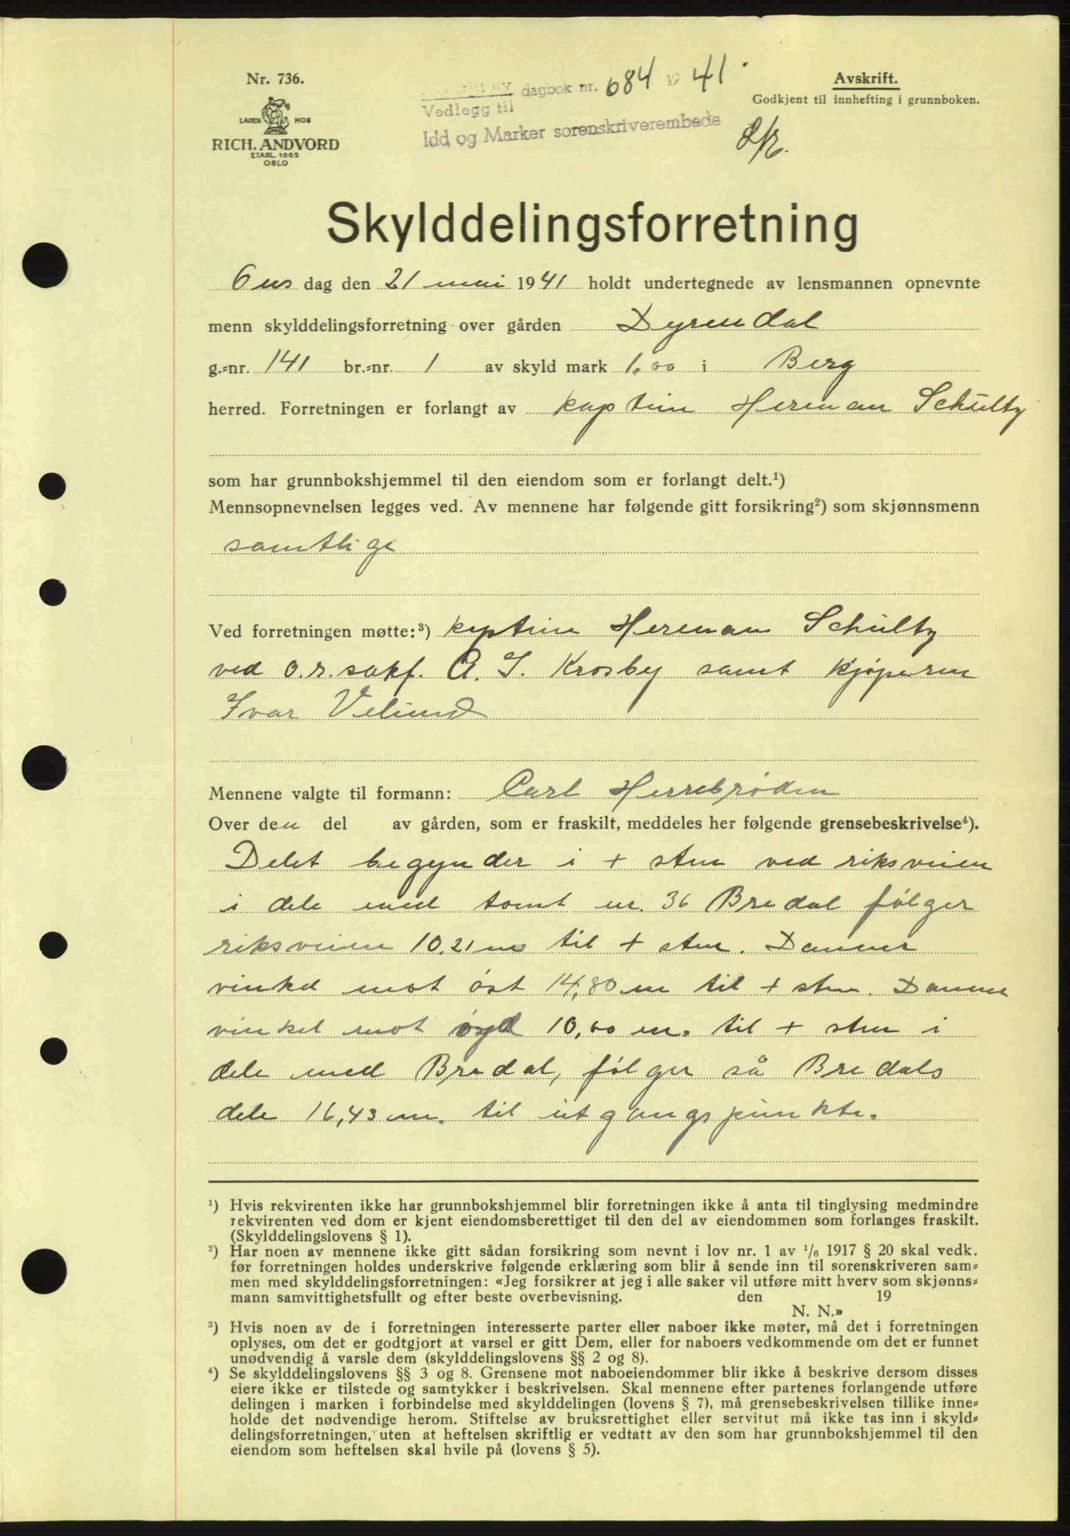 Nr. 736.
LAGER HOS
RICH. ANDVORD
ETABL. 1865
OSLO
dagbok nr. 684 1941.
Vedlegg til
Idd og Marker sorenskriverembede
Avskrift.
Godkjent til innhefting i grunnboken.
Skylddelingsforretning
Ons dag den 21 mai 1941 holdt undertegnede av lensmannen opnevnte
menn skylddelingsforretning over gården Dyrendal
g.-nr. 141 br.-nr. 1 av skyld mark 1,00 i Berg
herred. Forretningen er forlangt av kaptein Herman Schultz
som har grunnbokshjemmel til den eiendom som er forlangt delt.¹)
Mennsopnevnelsen legges ved. Av mennene har følgende gitt forsikring²) som skjønnsmenn
samtlige
Ved forretningen møtte:³) kaptein Herman Schultz
ved o.r.sakf. A. I. Krosby samt kjøperen
Ivar Velund
Mennene valgte til formann: Carl Herrebrøden
Over den del av gården, som er fraskilt, meddeles her følgende grensebeskrivelse⁴).
Delet begynder i + sten ved riksveien
i dele med tomt nr. 36 Bredal følger
riksveien 10,21 m til + sten. Danner
vinkel mot øst 14,80 m til + sten. Danner
vinkel mot syd 10,00 m. til + sten i
dele med Bredal, følger så Bredals
dele 16,43 m. til utgangspunkte.
¹) Hvis rekvirenten ikke har grunnbokshjemmel blir forretningen ikke å anta til tinglysing medmindre
rekvirenten ved dom er kjent eiendomsberettiget til den del av eiendommen som forlanges fraskilt.
(Skylddelingslovens § 1).
²) Har noen av mennene ikke gitt sådan forsikring som nevnt i lov nr. 1 av 1/6 1917 § 20 skal vedk.
før forretningen holdes underskrive følgende erklæring som blir å sende inn til sorenskriveren sam-
men med skylddelingsforretningen: «Jeg forsikrer at jeg i alle saker vil utføre mitt hverv som skjønns-
mann samvittighetsfullt og efter beste overbevisning. den 19
N. N.»
³) Hvis noen av de i forretningen interesserte parter eller naboer ikke møter, må det i forretningen
oplyses, om det er godtgjort at varsel er gitt Dem, eller for naboers vedkommende om det er funnet
unødvendig å varsle dem (skylddelingslovens §§ 2 og 8).
⁴) Se skylddelingslovens §§ 3 og 8. Grensene mot naboeiendommer blir ikke å beskrive dersom disses
eiere ikke er tilstede og samtykker i beskrivelsen. Skal mennene efter partenes forlangende utføre
delingen i marken i forbindelse med skylddelingen (lovens § 7), må grensebeskrivelsen tillike inne-
holde det nødvendige herom. Stiftelse av bruksrettighet eller servitut må ikke tas inn i skyld-
delingsforretningen, uten at heftelsen skriftlig er vedtatt av den som har grunnbokshjemmel til den
eiendom som heftelsen skal hvile på (lovens § 5).